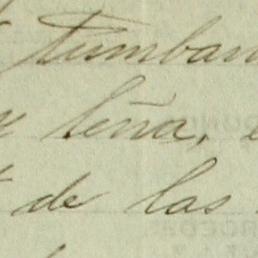 tumban
y leña,
de las